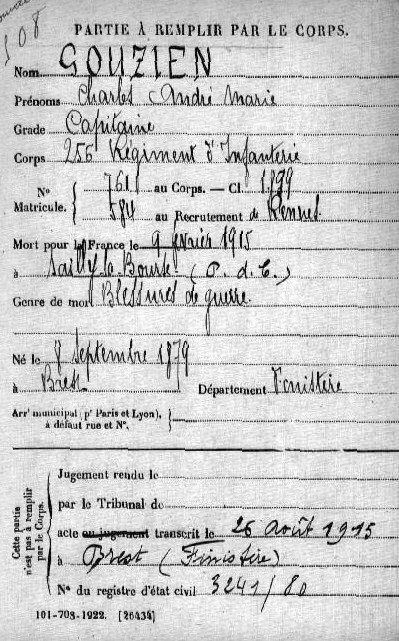 508
PARTIE À REMPLIR PAR LE CORPS.
Nom GOUZIEN
Prénoms Charles André Marie
Grade Capitaine
Corps 256 Régiment d'Infanterie
N° 761 au Corps. — Cl. 1899
Matricule. 584 au Recrutement de Rennes
Mort pour la France le 9 février 1915
à Sailly la Bourse (P. d. C.)
Genre de mort Blessures de guerre.
Né le 8 Septembre 1879
à Brest Département Finistère
Arrt municipal (pr Paris et Lyon),
à défaut rue et N°.
Cette partie
n'est pas à remplir
par le Corps.
Jugement rendu le
par le Tribunal de
acte ou jugement transcrit le 26 août 1915
à Brest (Finistère)
N° du registre d'état civil 3241/80
101-708-1922. [26434]